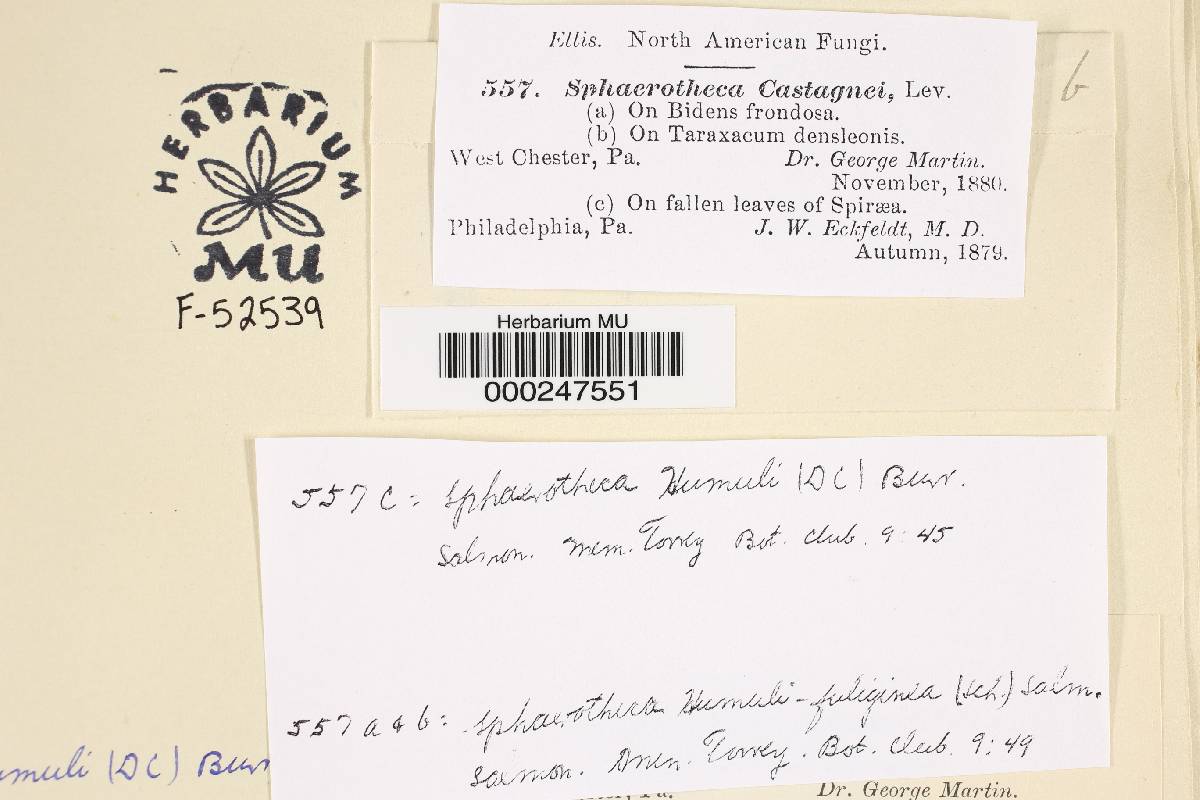 Ellis. North American Fungi.
557. Sphaerotheca Castagnei, Lev.
(a) On Bidens frondosa.
(b) On Taraxacum densleonis.
West Chester, Pa. Dr. George Martin.
November, 1880.
(c) On fallen leaves of Spiræa.
Philadelphia, Pa. J. W. Eckfeldt, M. D.
Autumn, 1879.
b
HERBARIUM
MU
F-52539
Herbarium MU
000247551
557 c = Sphaerotheca Humuli (DC) Burr.
Salmon. Mem. Torrey Bot. Club. 9:45
557 a & b: Sphaerotheca Humuli-fuliginea (Sch.) Salm.
Salmon. Mem. Torrey. Bot. Club. 9:49
umuli (DC) Burr
Dr. George Martin.